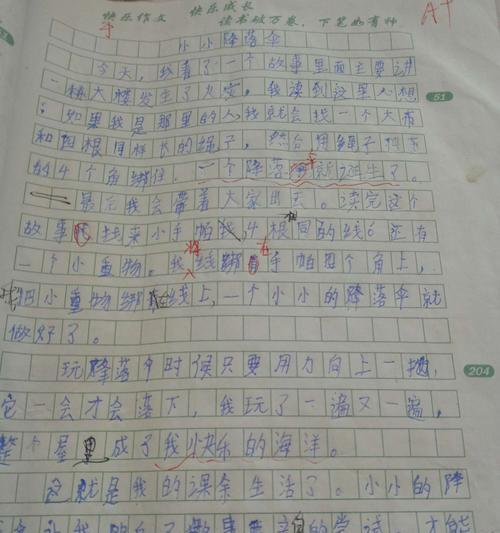 快乐作文 快乐成长
读书破万卷，下笔如有神
A+
小小降落伞
今天，我看了一个故事里面主要讲
一栋大楼发生了火灾，我读到这里心想
：如果我是那里的人，我就会找一个大布
51
和四根同样长的绳子，然后用绳子把布
的4个角绑住，一个降落伞就诞生了。
最后我会带着大家出去。读完这个
故事我找来小手帕4根同的线6还有
一个小重物。我将线绑在手帕四个角上，
把小重物绑在线上，一个小小的降落伞就
做好了。
玩降落伞时候只要用力向上一抛，
204
它一会才会落下，我玩了一遍又一遍，
整个屋里成了我快乐的海洋。
这就是我的课余生活了。小小的降